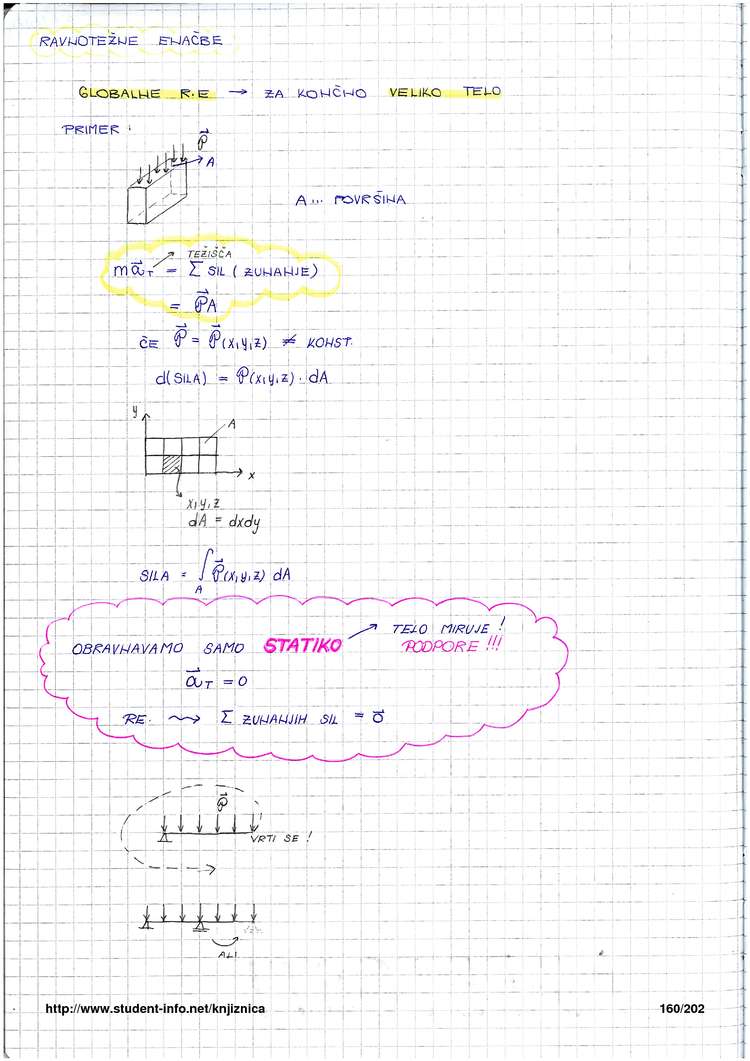 RAVNOTEŽNE ENAČBE
GLOBALNE R.E → ZA KONČNO VELIKO TELO
PRIMER:
P⃗
A
A... POVRŠINA
TEŽIŠČA
ma⃗T = Σ SIL (ZUNANJE)
= P⃗A
ČE P⃗ = P⃗(x,y,z) ≠ KONST.
d(SILA) = P(x,y,z) · dA
y
A
x
x,y,z
dA = dxdy
SILA = ∫A P⃗(x,y,z) dA
TELO MIRUJE!
OBRAVNAVAMO SAMO STATIKO PODPORE!!!
a⃗T = 0
RE. ⇝ Σ ZUNANJIH SIL = 0⃗
P⃗
VRTI SE!
ALI
http://www.student-info.net/knjiznica
160/202